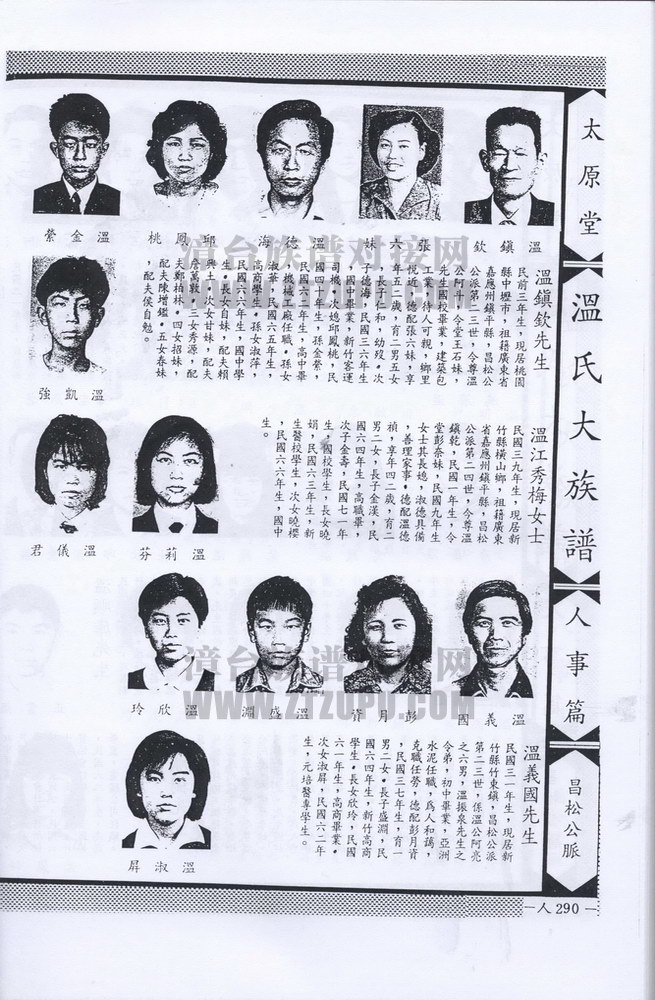 太原堂
溫氏大族譜
人事篇
昌松公脈
—人290—
溫鎮欽
張六妹
溫德海
邱鳳桃
溫金縈
溫凱強
溫鎮欽先生
民前三年生，現居桃園
縣中壢市，祖籍廣東省
嘉應州鎮平縣，昌松公
派第二三世，令尊溫
公阿廾，令堂王石妹，
先生國校畢業，建築包
工業，待人可親，鄉里
悅近，德配張六妹，享
年五二歲，育二男五女
，長子仁和，幼歿。次
子德海，民國三六年生
，國中畢業，新竹客運
司機，次媳邱鳳桃，民
國四十年生，孫金縈，
民國六二年生，高中畢
，機械工廠任職。孫女
淑華，民國六五年生，
高商學生。孫女淑萍，
民國六六年生，國中學
生。長女自妹，配夫賴
興土。次女甘妹，配夫
詹萬戰。三女秀源，配
夫鄭柏林。四女招妹，
配夫陳增鑑。五女春妹
，配夫侯自勉。
溫莉芬
溫儀君
溫江秀梅女士
民國三九年生，現居新
竹縣橫山鄉，祖籍廣東
省嘉應州鎮平縣，昌松
公派第二四世，令尊溫
鎮乾，民國一年生，令
堂彭奈妹，民國九年生
女士其長媳，淑德具備
，善理家事。德配溫德
禎，享年四二歲，育二
男二女，長子金漢，民
國六四年生，高職畢，
次子金壽，民國七一年
生，國校學生，長女曉
娟，民國六三年生，新
生醫校學生，次女曉櫻
，民國六六年生，國中
生。
溫義國
彭月資
溫盛淵
溫欣玲
溫淑屏
溫義國先生
民國三一年生，現居新
竹縣竹東鎮，昌松公派
第二三世，係溫公阿亮
之六男，溫振泉先生之
令弟，初中畢業，亞洲
水泥任職，爲人和藹，
克職任勞，德配彭月資
，民國三七年生，育一
男二女。長子盛淵，民
國六四年生，新竹高商
學生。長女欣玲，民國
六一年生，高商畢業。
次女淑屏，民國六二年
生，元培醫專學生。
漳台族谱对接网
WWW.ZTZUPU.COM
漳台族谱对接网
WWW.ZTZUPU.COM